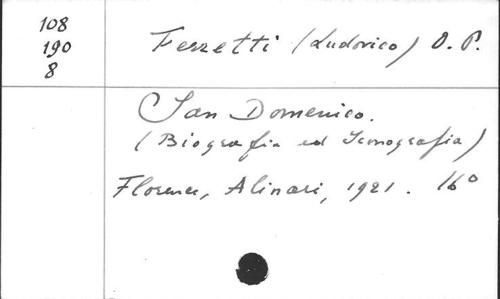 108
190
8
Ferretti (Ludovico) O. P.
San Domenico.
(Biografia ed Iconografia)
Florence, Alinari, 1921. 16°